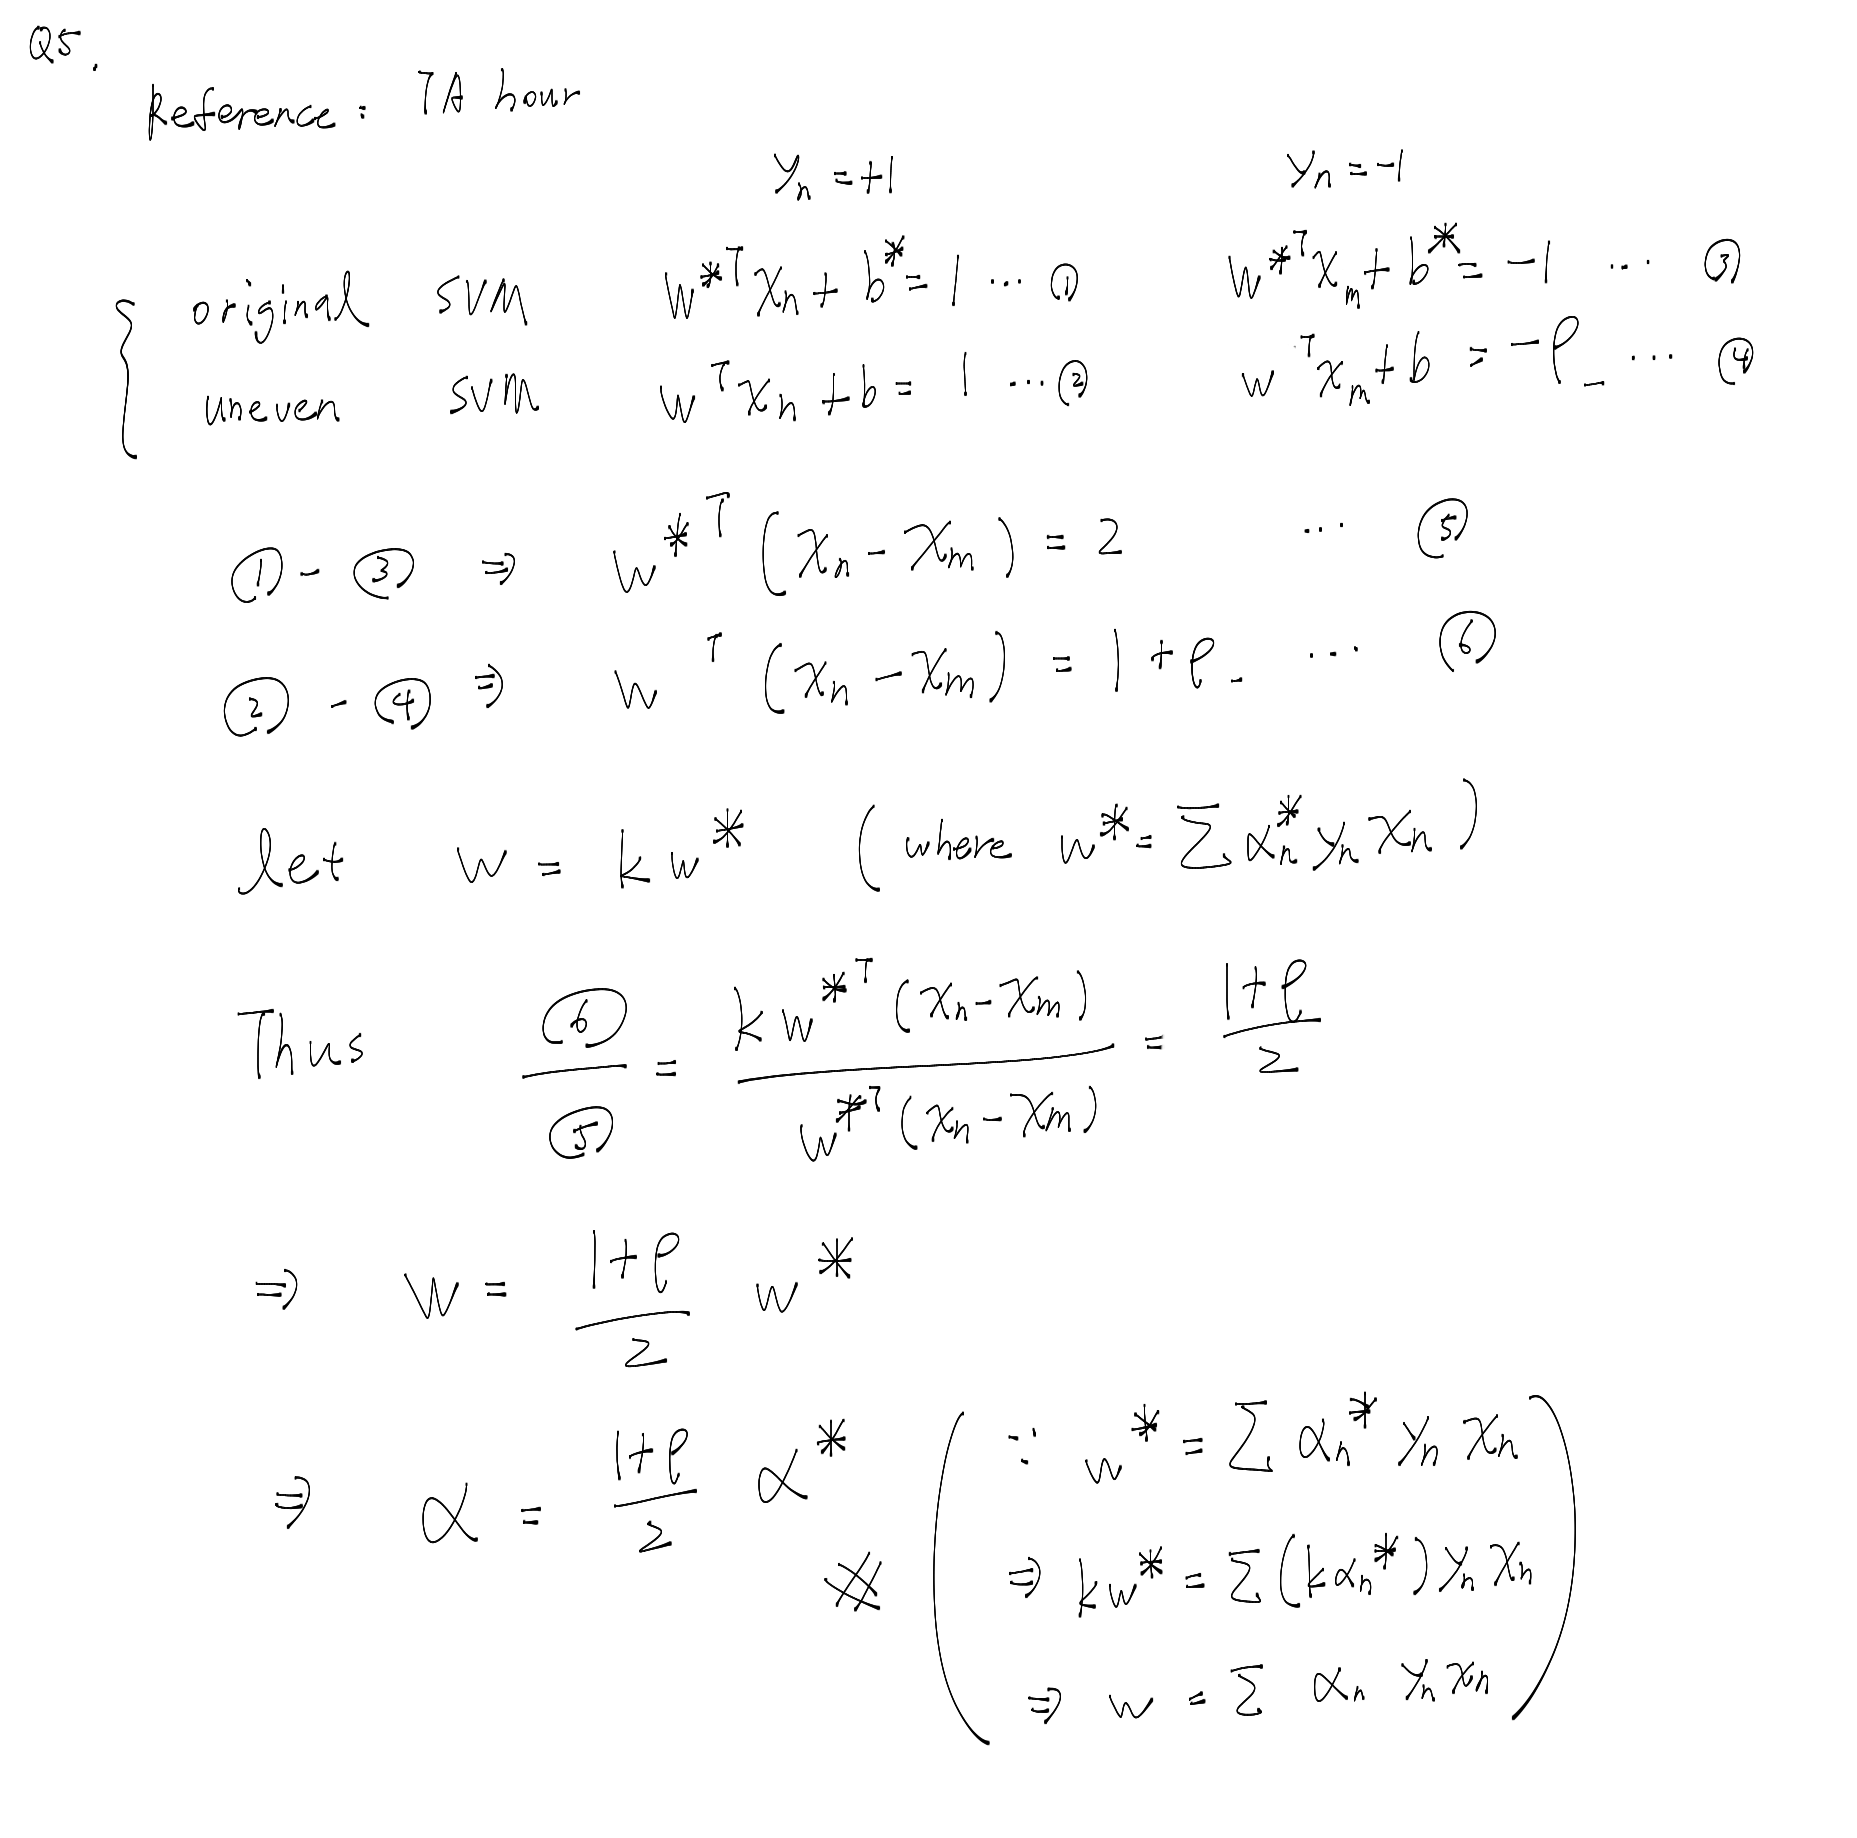 Q5.
Reference: TA hour
yₙ = +1    yₙ = -1
original SVM    w*ᵀxₙ + b* = 1 ... ①    w*ᵀxₘ + b* = -1 ... ③
uneven SVM    wᵀxₙ + b = 1 ... ②    wᵀxₘ + b = -ρ_ ... ④
① - ③ ⇒ w*ᵀ (xₙ - xₘ) = 2 ... ⑤
② - ④ ⇒ wᵀ (xₙ - xₘ) = 1 + ρ_ ... ⑥
let w = k w* (where w* = Σ αₙ* yₙ xₙ)
Thus ⑥/⑤ = k w*ᵀ (xₙ - xₘ) / w*ᵀ (xₙ - xₘ) = (1+ρ)/2
⇒ w = (1+ρ)/2 w*
⇒ α = (1+ρ)/2 α* #
(∵ w* = Σ αₙ* yₙ xₙ
⇒ kw* = Σ (kαₙ*) yₙ xₙ
⇒ w = Σ αₙ yₙ xₙ)